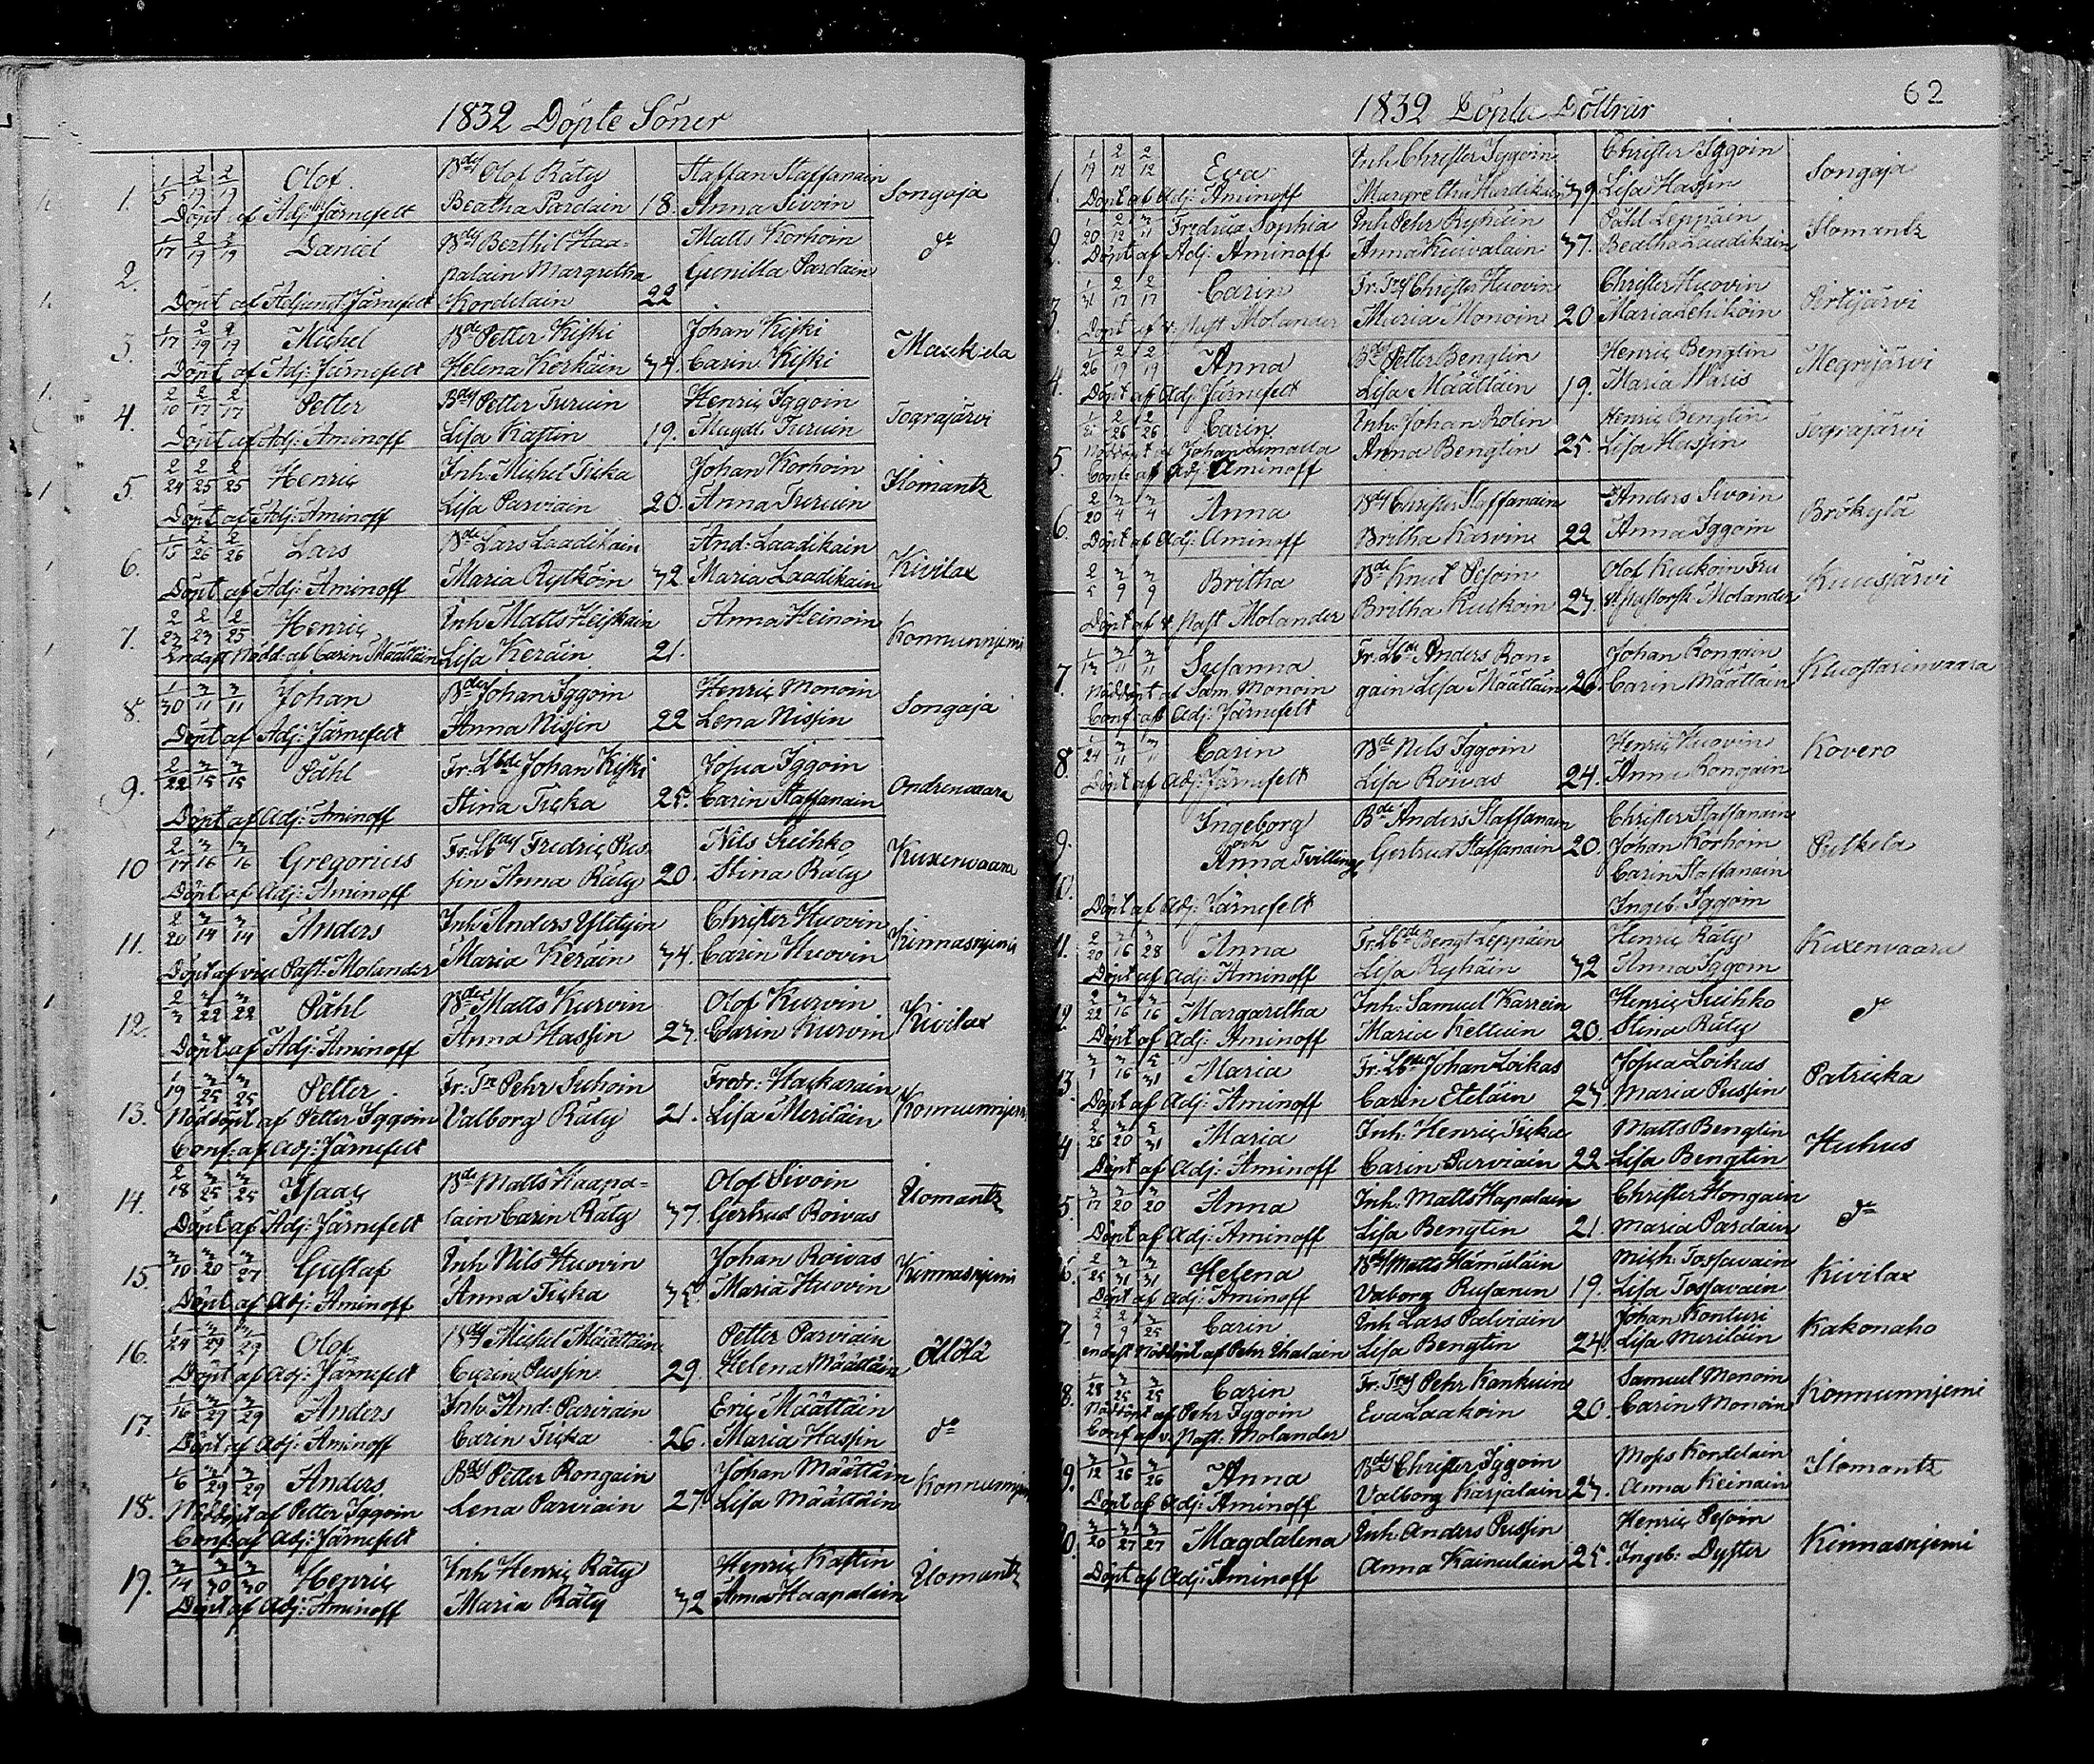 1832 Döpte Söner
1. 1/5 2/19 2/19 Olof Bde Olof Räty Staffan Staffanain Songaja
Döpt af Adj: Järnefelt Beatha Pardain 18. Anna Sivoin
2. 1/17 2/19 2/19 Daniel Bde Berthil Haa= Matts Korhoin do
palain Margretha Gunilla Pardain
Döpt af Adjunct Järnefelt Kordelain 22
3. 1/17 2/19 2/19 Michel Bde Petter Kiski Johan Kiski Maukila
Döpt af Adj: Järnefelt Helena Kerkäin 34. Carin Kiski
4. 2/10 2/17 2/17 Petter Bde Petter Turuin Henric Iggoin Tograjärvi
Döpt af Adj: Aminoff Lisa Kastin 19. Magd: Turuin
5. 2/24 2/25 2/25 Henric Inh Michel Ticka Johan Korhoin Ilomantz
Döpt af Adj: Aminoff Lisa Parviain 20. Anna Turuin
6. 1/15 2/26 2/26 Lars Bde Lars Laadikain And: Laadikain Kivilax
Döpt af Adj: Aminoff Maria Rytköin 32 Maria Laadikain
7. 2/23 2/23 2/25 Henric Inh Matts Heiskain Anna Heinoin Konnunnjemi
Endast Nödd: af Carin Määttäin Lisa Keräin 21.
8. 1/30 3/11 3/11 Johan Bde Johan Iggoin Henric Monoin Songaja
Döpt af Adj: Järnefelt Anna Nissin 22 Lena Nissin
9. 2/22 3/15 3/15 Påhl Fr: Lbde Johan Kiski Josua Iggoin Ondrenvaara
Döpt af Adj: Aminoff Stina Ticka 25 Carin Staffanain
10 2/17 3/16 3/16 Gregorius Fr: Lbde Fredric Pus= Nils Suihko Kuxenvaara
Döpt af Adj: Aminoff sin Anna Räty 20. Stina Räty
11. 2/20 3/14 3/14 Anders Inh Anders Christer Huovin Kinnasnjemi
Döpt af vice Past: Molander Maria Keräin 34. Carin Huovin
12. 2/3 3/22 3/22 Påhl Bde Matts Kurvin Olof Kurvin Kivilax
Döpt af Adj: Aminoff Anna Hassin 23. Carin Kurvin
13. 1/19 3/25 3/25 Petter Fr: Tr Pehr Suhoin Fredr: Hackarain Konnunnjemi
Nöddöpt af Petter Iggoin Valborg Räty 21. Lisa Meriläin
Conf: af Adj: Järnefelt
14. 2/18 3/25 3/25 Isaac Bde Matts Haapa= Olof Sivoin Ilomantz
Döpt af Adj: Järnefelt lain Carin Räty 37. Gertrud Roivas
15 3/10 3/20 3/27 Gustaf Inh Nils Huovin Johan Roivas Kinnasnjemi
Döpt af Adj: Aminoff Anna Ticka Maria Huovin
16. 1/24 3/29 3/29 Olof Bde Michel Määttäin Petter Parviain
Döpt af Adj: Järnefelt Carin Pussin 29. Helena Määttäin
17. 1/16 3/29 3/29 Anders Inh And: Parviain Eric Määttäin do
Döpt af Adj: Aminoff Carin Ticka 26. Maria Hassin
18. 1/6 3/29 3/29 Anders Bde Petter Rongain Johan Määttäin Konnunnjemi
Nöddöpt af Petter Iggoin Lena Parviain 27 Lisa Määttäin
Conf: af Adj: Järnefelt
19. 3/14 3/30 3/30 Henric Inh Henric Räty Henric Kastin Ilomantz
Döpt af Adj: Aminoff Maria Räty 32 Anna Haapalain
62
1832 Döpta Döttrar
1. 1/19 2/12 2/12 Eva Inh Christer Iggoin Christer Iggoin Songaja
Döpt af Adj: Aminoff Margretha Hardikain 39. Lisa Hassin
2. 1/20 2/12 3/11 Fredrica Sophia Inh Pehr Ryhäin Påhl Leppäin Ilomantz
Döpt af Adj: Aminoff Anna Kuivalain 37. Beatha Laadikain
3. 1/31 2/17 2/17 Carin Fr: Tr Christer Huovin Christer Huovin
Döpt af v. Past. Molander Maria Monoin 20 Maria Lehikoin
4. 1/26 2/19 2/19 Anna Bde Petter Bengtin Henric Bengtin Megrijärvi
Döpt af Adj: Järnefelt Lisa Määttäin 19. Maria Waris
5. 2/26 2/26 Carin Inh: Johan Rotin Henric Bengtin Tograjärvi
Nöddöpt af Johan Limatta Anna Bengtin 25. Lisa Hassin
Conf: af Adj: Aminoff
6. 2/20 3/4 3/4 Anna Bde Christer Staffanain Anders Sivoin Brökylä
Döpt af Adj: Aminoff Britha Karvin 22 Anna Iggoin
2/5 3/9 3/9 Britha Bde Knut Pesoin Olof Kuikoin Fru Kuusjärvi
Döpt af v Past Molander Britha Kuikoin 23. Molander
7. 1/13 3/11 3/11 Susanna Fr: Lbde Anders Ron= Johan Rongain
Nöddöpt af Sam. Monoin gain Lisa Määttäin 26. Carin Määttäin
Conf: af Adj: Järnefelt
8. 1/24 3/11 3/11 Carin Bde Nils Iggoin Henric Huovin Kovero
Döpt af Adj: Järnefelt Lisa Roivas 24. Anna Rongain
9. Ingeborg Bde Anders Staffanain Christer Staffanain
och
10. Anna Tvilling Gertrud Staffanain 20. Johan Korhoin Putkela
Carin Staffanain
Döpt af Adj: Järnefelt Ingeb: Iggoin
11. 2/20 3/16 3/28 Anna Fr: Lbde Bengt Leppäin Henric Räty Kuxenvaara
Döpt af Adj: Aminoff Lisa Ryhäin 32 Anna Iggoin
12 2/22 3/16 3/16 Margaretha Inh: Samuel Karrein Henric Suihko do
Döpt af Adj: Aminoff Maria Keltuin 20. Stina Räty
13. 3/1 3/16 5/31 Maria Fr: Lbde Johan Loikas Josua Loikas Patricka
Döpt af Adj: Aminoff Carin Eteläin 23 Maria Pussin
14 2/26 3/20 5/31 Maria Inh: Henric Ticka Matts Bengtin Huhus
Döpt af Adj: Aminoff Carin Parviain 22 Lisa Bengtin
15. 3/17 3/20 3/20 Anna Inh: Matts Hapalain Christer Hongain do
Döpt af Adj: Aminoff Lisa Bengtin 21. Maria Pardain
16. 2/25 3/31 3/31 Helena Bde Matts Hämäläin Mich: Tossavain Kivilax
Döpt af Adj: Aminoff Valborg Rusanin 19. Lisa Tossavain
17 2/9 2/9 3/25 Carin Inh Lars Palviain Johan Konturi Kakonaho
endast Nöddöpt af Pehr Lisa Bengtin 24 Lisa Meriläin
18. 1/28 3/25 3/25 Carin Fr: Tr Pehr Kankuin Samuel Monoin Konnunnjemi
Nöddöpt af Pehr Iggoin Eva Laakoin 20. Carin Monoin
Conf af v. Past: Molander
19. 3/12 3/26 3/26 Anna Bde Christer Iggoin Moses Kordelain Ilomantz
Döpt af Adj: Aminoff Valborg Karjalain 23. Anna Keinain
20. 3/20 3/27 3/27 Magdalena Inh: Anders Pussin Henric Pesoin Kinnasnjemi
Döpt af Adj: Aminoff Anna Kainulain 25. Ingeb: Dyster